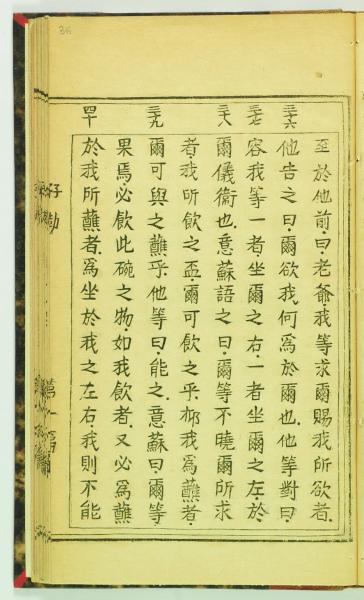 至於他前曰.老爺.我等求爾賜我所欲者.
三十六 他告之曰.爾欲我何為於爾也.他等對曰.
三十七 容我等一者.坐爾之右.一者坐爾之左.於
三十八 爾儀衛也.意蘇語之曰.爾等不曉爾所求
者.我所飲之盃.爾可飲之乎.抑我為蘸者.
三十九 爾可與之蘸乎.他等曰.能之.意蘇曰.爾等.
果焉.必飲此碗之物.如我飲者.又必為蘸
四十 於我所蘸者.為坐於我之左右.我則不能